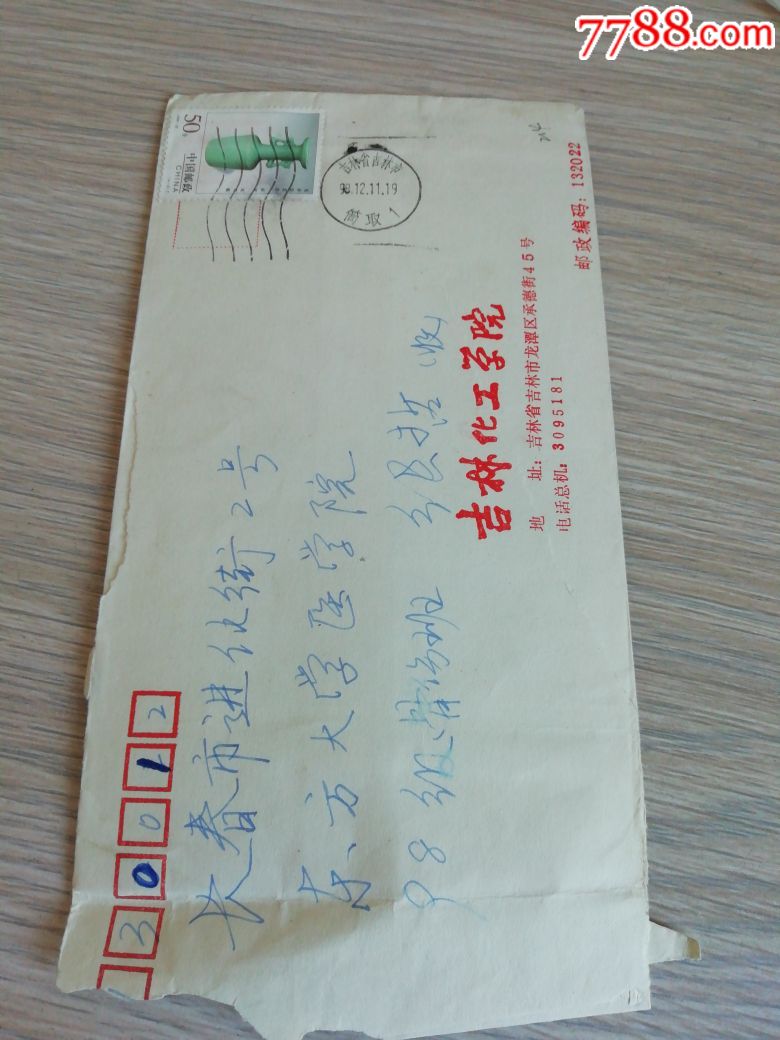 7788.com
中国邮政
CHINA
50分
吉林省吉林市
98.12.11.19
邮政编码：132022
30012
长春市进化街2号
东方大学医学院
98级
班
收
吉林化工学院
地 址：吉林省吉林市龙潭区承德街45号
电话总机：3095181